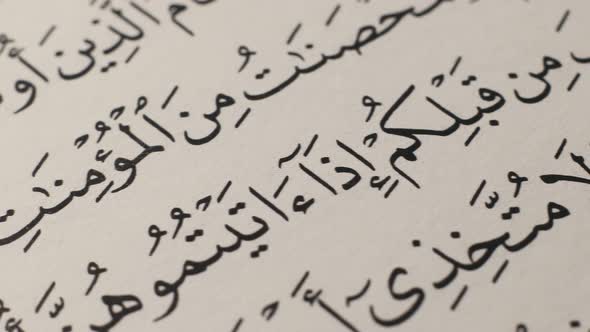 الَّذِينَ
مُحْصَنَٰتُ مِنَ الْمُؤْمِنَٰتِ
مِن قَبْلِكُمْ إِذَآ ءَاتَيْتُمُوهُنَّ
مُتَّخِذِىٓ